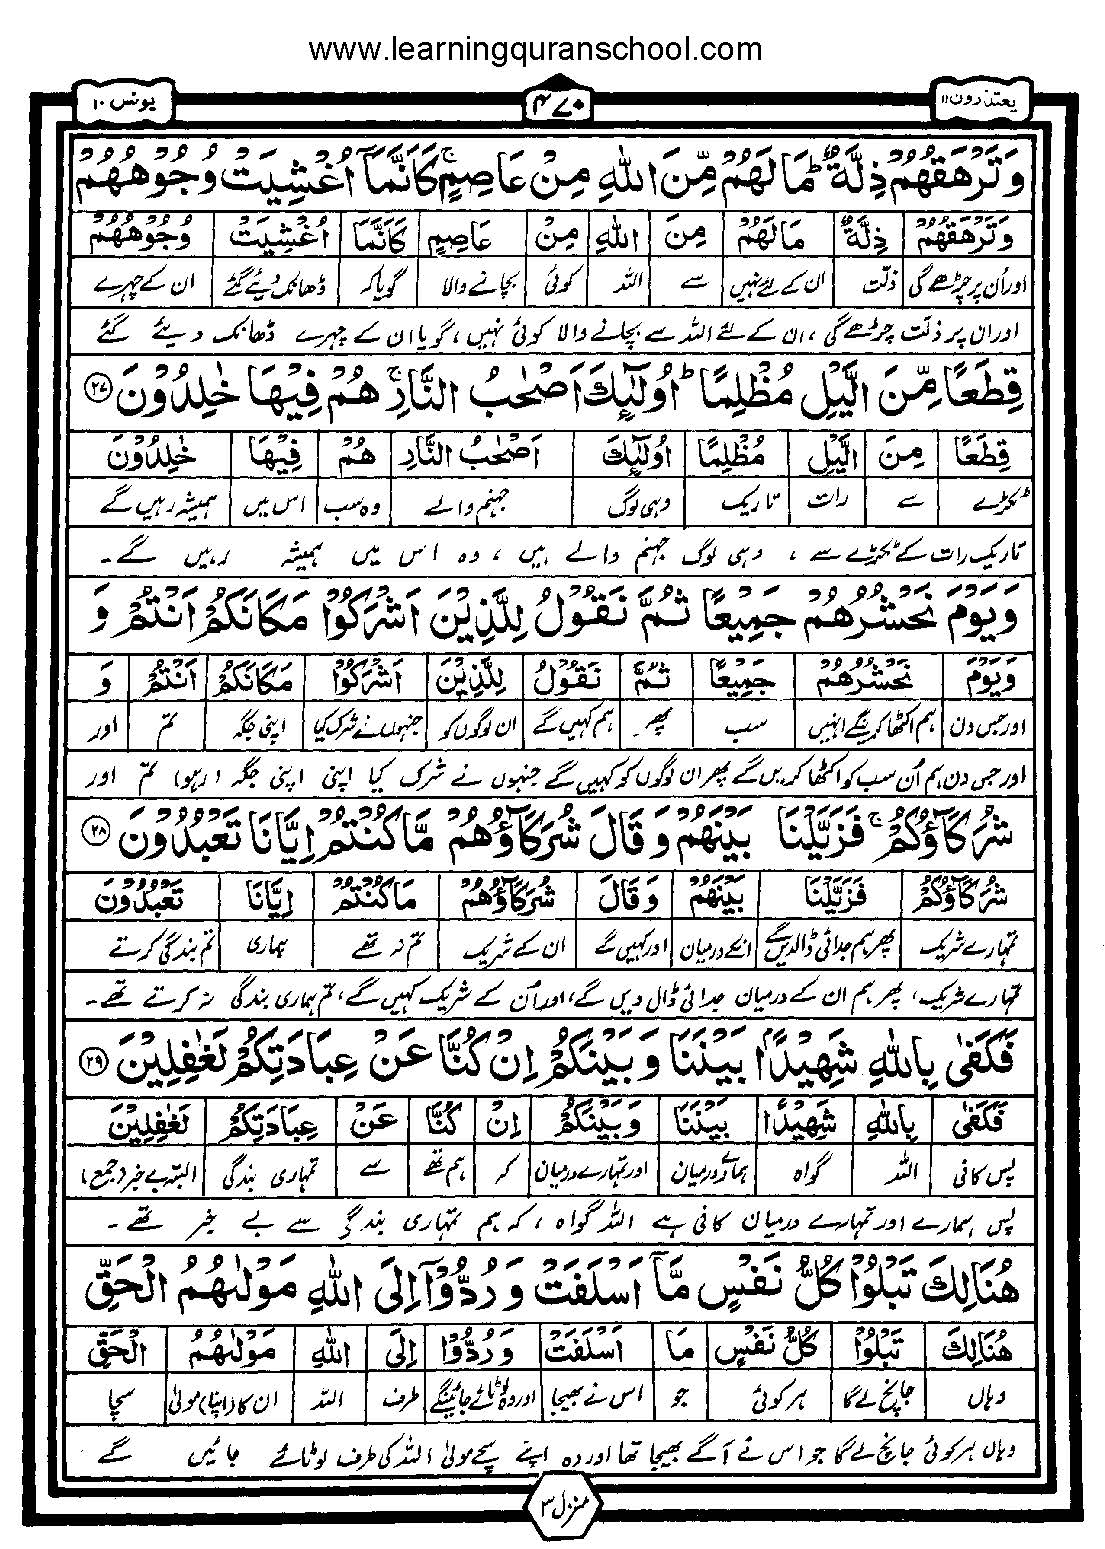 www.learningquranschool.com
یعتذرون ۱۱
۴۷۰
یونس ۱۰
وَتَرْهَقُهُمْ ذِلَّةٌ ؕ مَا لَهُمْ مِّنَ اللّٰهِ مِنْ عَاصِمٍ ۚ كَاَنَّمَاۤ اُغْشِيَتْ وُجُوْهُهُمْ
وَتَرْهَقُهُمْ ذِلَّةٌ مَا لَهُمْ مِنَ اللّٰهِ مِنْ عَاصِمٍ كَاَنَّمَا اُغْشِيَتْ وُجُوْهُهُمْ
اور اُن پر چڑھے گی ذلّت ان کے لئے نہیں سے اللہ کوئی بچانے والا گویا کہ ڈھانک دیئے گئے ان کے چہرے
اور ان پر ذلّت چڑھے گی، ان کے لئے اللہ سے بچانے والا کوئی نہیں، گویا ان کے چہرے ڈھانک دیئے گئے
قِطَعًا مِّنَ الَّيْلِ مُظْلِمًا ؕ اُولٰٓئِكَ اَصْحٰبُ النَّارِ ۚ هُمْ فِيْهَا خٰلِدُوْنَ ۲۷
قِطَعًا مِنَ الَّيْلِ مُظْلِمًا اُولٰٓئِكَ اَصْحٰبُ النَّارِ هُمْ فِيْهَا خٰلِدُوْنَ
ٹکڑے سے رات تاریک وہی لوگ جہنم والے وہ سب اس میں ہمیشہ رہیں گے
تاریک رات کے ٹکڑے سے ، وہی لوگ جہنم والے ہیں ، وہ اس میں ہمیشہ رہیں گے ۔
وَيَوْمَ نَحْشُرُهُمْ جَمِيْعًا ثُمَّ نَقُوْلُ لِلَّذِيْنَ اَشْرَكُوْا مَكَانَكُمْ اَنْتُمْ وَ
وَيَوْمَ نَحْشُرُهُمْ جَمِيْعًا ثُمَّ نَقُوْلُ لِلَّذِيْنَ اَشْرَكُوْا مَكَانَكُمْ اَنْتُمْ وَ
اور جس دن ہم اکٹھا کرینگے انہیں سب پھر ہم کہیں گے ان لوگوں کو جنہوں نے شرک کیا اپنی جگہ تم اور
اور جس دن ہم اُن سب کو اکٹھا کریں گے پھر ان لوگوں کو کہیں گے جنہوں نے شرک کیا اپنی اپنی جگہ (رہو) تم اور
شُرَكَآؤُكُمْ ۚ فَزَيَّلْنَا بَيْنَهُمْ وَقَالَ شُرَكَآؤُهُمْ مَّا كُنْتُمْ اِيَّانَا تَعْبُدُوْنَ ۲۸
شُرَكَآؤُكُمْ فَزَيَّلْنَا بَيْنَهُمْ وَقَالَ شُرَكَآؤُهُمْ مَا كُنْتُمْ اِيَّانَا تَعْبُدُوْنَ
تمہارے شریک پھر ہم جدائی ڈالدیں گے انکے درمیان اور کہیں گے ان کے شریک تم نہ تھے ہماری تم بندگی کرتے
تمہارے شریک، پھر ہم ان کے درمیان جدائی ڈال دیں گے، اور اُن کے شریک کہیں گے، تم ہماری بندگی نہ کرتے تھے۔
فَكَفٰى بِاللّٰهِ شَهِيْدًۢا بَيْنَنَا وَبَيْنَكُمْ اِنْ كُنَّا عَنْ عِبَادَتِكُمْ لَغٰفِلِيْنَ ۲۹
فَكَفٰى بِاللّٰهِ شَهِيْدًا بَيْنَنَا وَبَيْنَكُمْ اِنْ كُنَّا عَنْ عِبَادَتِكُمْ لَغٰفِلِيْنَ
پس کافی اللہ گواہ ہمارے درمیان اور تمہارے درمیان کہ ہم تھے سے تمہاری بندگی البتہ بے خبر (جمع)
پس ہمارے اور تمہارے درمیان کافی ہے اللہ گواہ ، کہ ہم تمہاری بندگی سے بے خبر تھے ۔
هُنَالِكَ تَبْلُوْا كُلُّ نَفْسٍ مَّاۤ اَسْلَفَتْ وَرُدُّوْۤا اِلَى اللّٰهِ مَوْلٰىهُمُ الْحَقِّ
هُنَالِكَ تَبْلُوْا كُلُّ نَفْسٍ مَا اَسْلَفَتْ وَرُدُّوْا اِلَى اللّٰهِ مَوْلٰىهُمُ الْحَقِّ
وہاں جانچ لے گا ہر کوئی جو اس نے بھیجا اور وہ لوٹائے جائینگے طرف اللہ ان کا (اپنا) مولیٰ سچا
وہاں ہر کوئی جانچ لے گا جو اس نے آگے بھیجا تھا اور وہ اپنے سچے مولیٰ اللہ کی طرف لوٹائے جائیں گے
منزل ۳